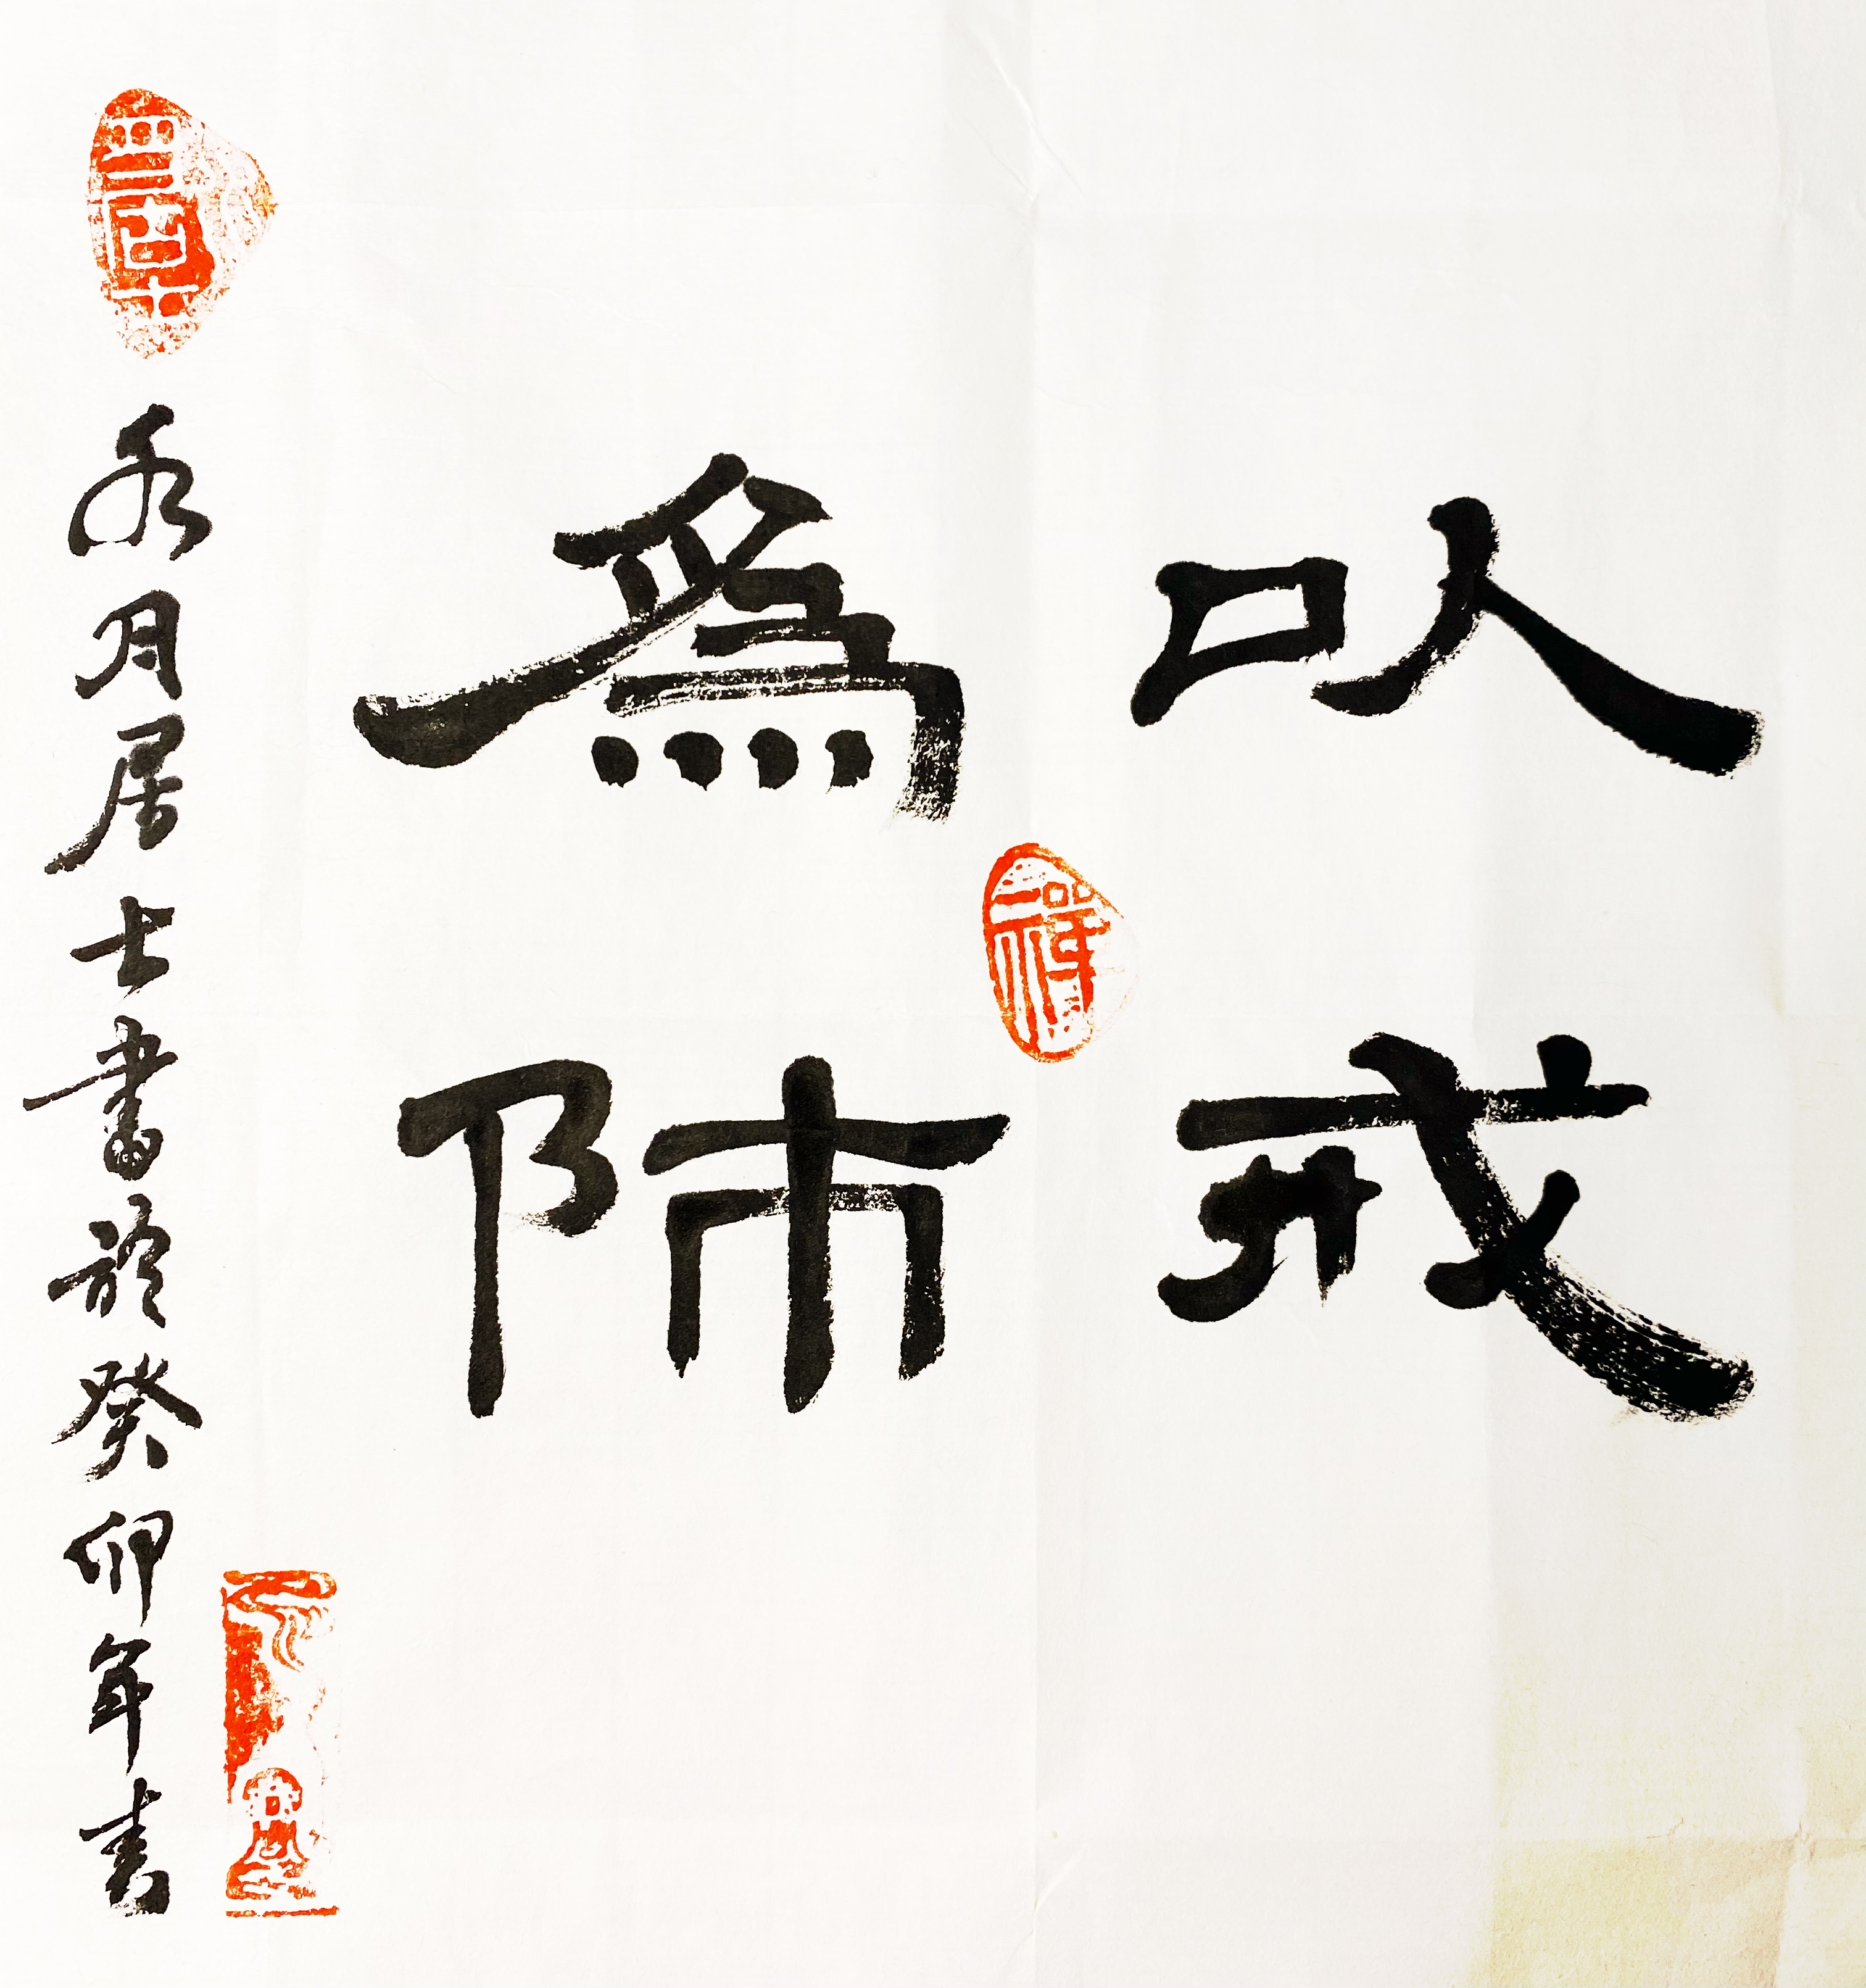 以戒
為師
水月居士書於癸卯年書
禪